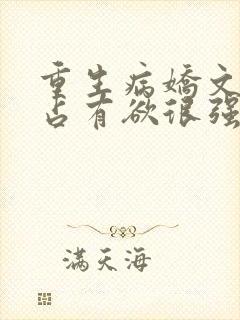 重生病嬌文
占有欲很强
满天海